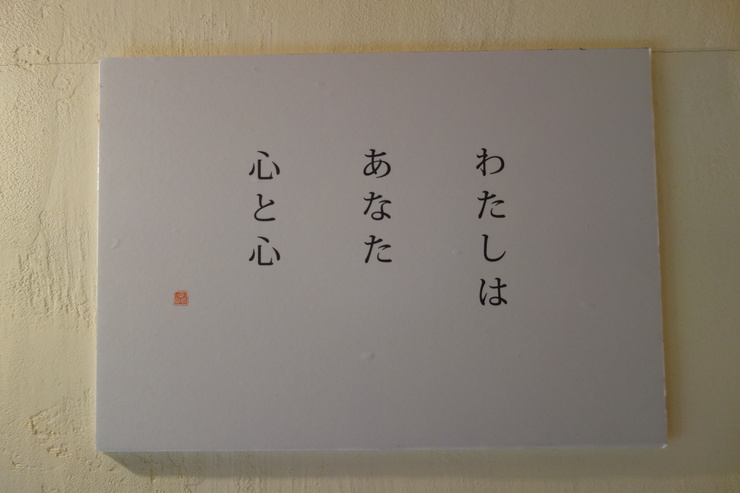 わたしは
あなた
心と心